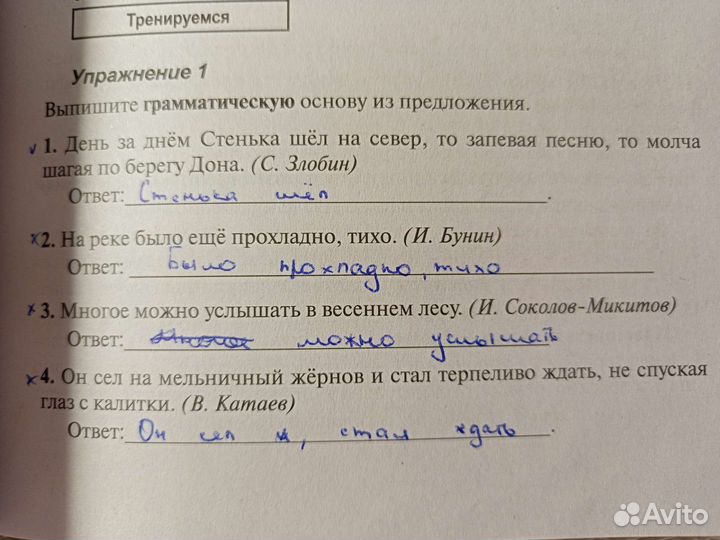 Тренируемся
Упражнение 1
Выпишите грамматическую основу из предложения.
✓ 1. День за днём Стенька шёл на север, то запевая песню, то молча
шагая по берегу Дона. (С. Злобин)
Ответ: Стенька шёл.
×2. На реке было ещё прохладно, тихо. (И. Бунин)
Ответ: Было прохладно, тихо
×3. Многое можно услышать в весеннем лесу. (И. Соколов-Микитов)
Ответ: можно услышать
×4. Он сел на мельничный жёрнов и стал терпеливо ждать, не спуская
глаз с калитки. (В. Катаев)
Ответ: Он сел, стал ждать.
Avito